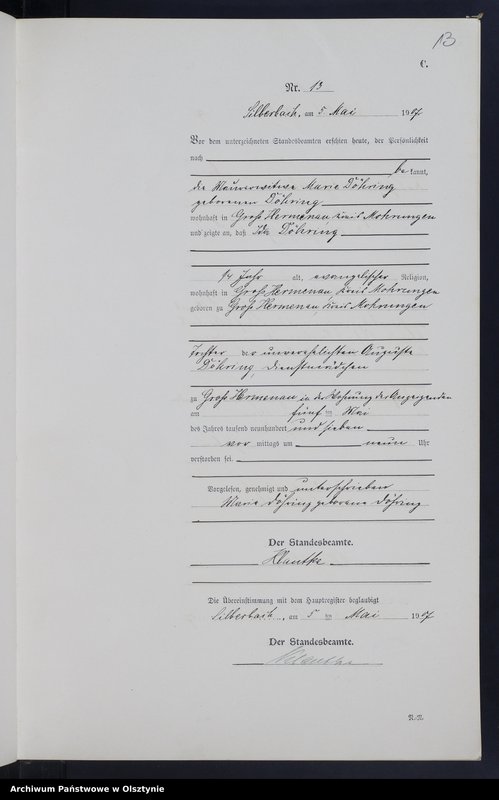 13
C.
Nr. 13
Silberbach, am 5. Mai 1907
Vor dem unterzeichneten Standesbeamten erschien heute, der Persönlichkeit
nach
be kannt,
die Maurerwitwe Marie Döhring
geborenen Döhring
wohnhaft in Groß Hermenau Kreis Mohrungen
und zeigte an, daß Ida Döhring
1/4 Jahr alt, evangelischer Religion,
wohnhaft in Groß Hermenau Kreis Mohrungen
geboren zu Groß Hermenau, Kreis Mohrungen
Tochter der unverehelichten Auguste
Döhring, Dienstmädchen
zu Groß Hermenau in der Wohnung der Anzeigenden
am fünf ten Mai
des Jahres tausend neunhundert und sieben
vor mittags um neun Uhr
verstorben sei.
Vorgelesen, genehmigt und unterschrieben
Marie Döhring geborene Döhring
Der Standesbeamte.
Klautke
Die Übereinstimmung mit dem Hauptregister beglaubigt
Silberbach, am 5 ten Mai 1907
Der Standesbeamte.
Klautke
Archiwum Państwowe w Olsztynie